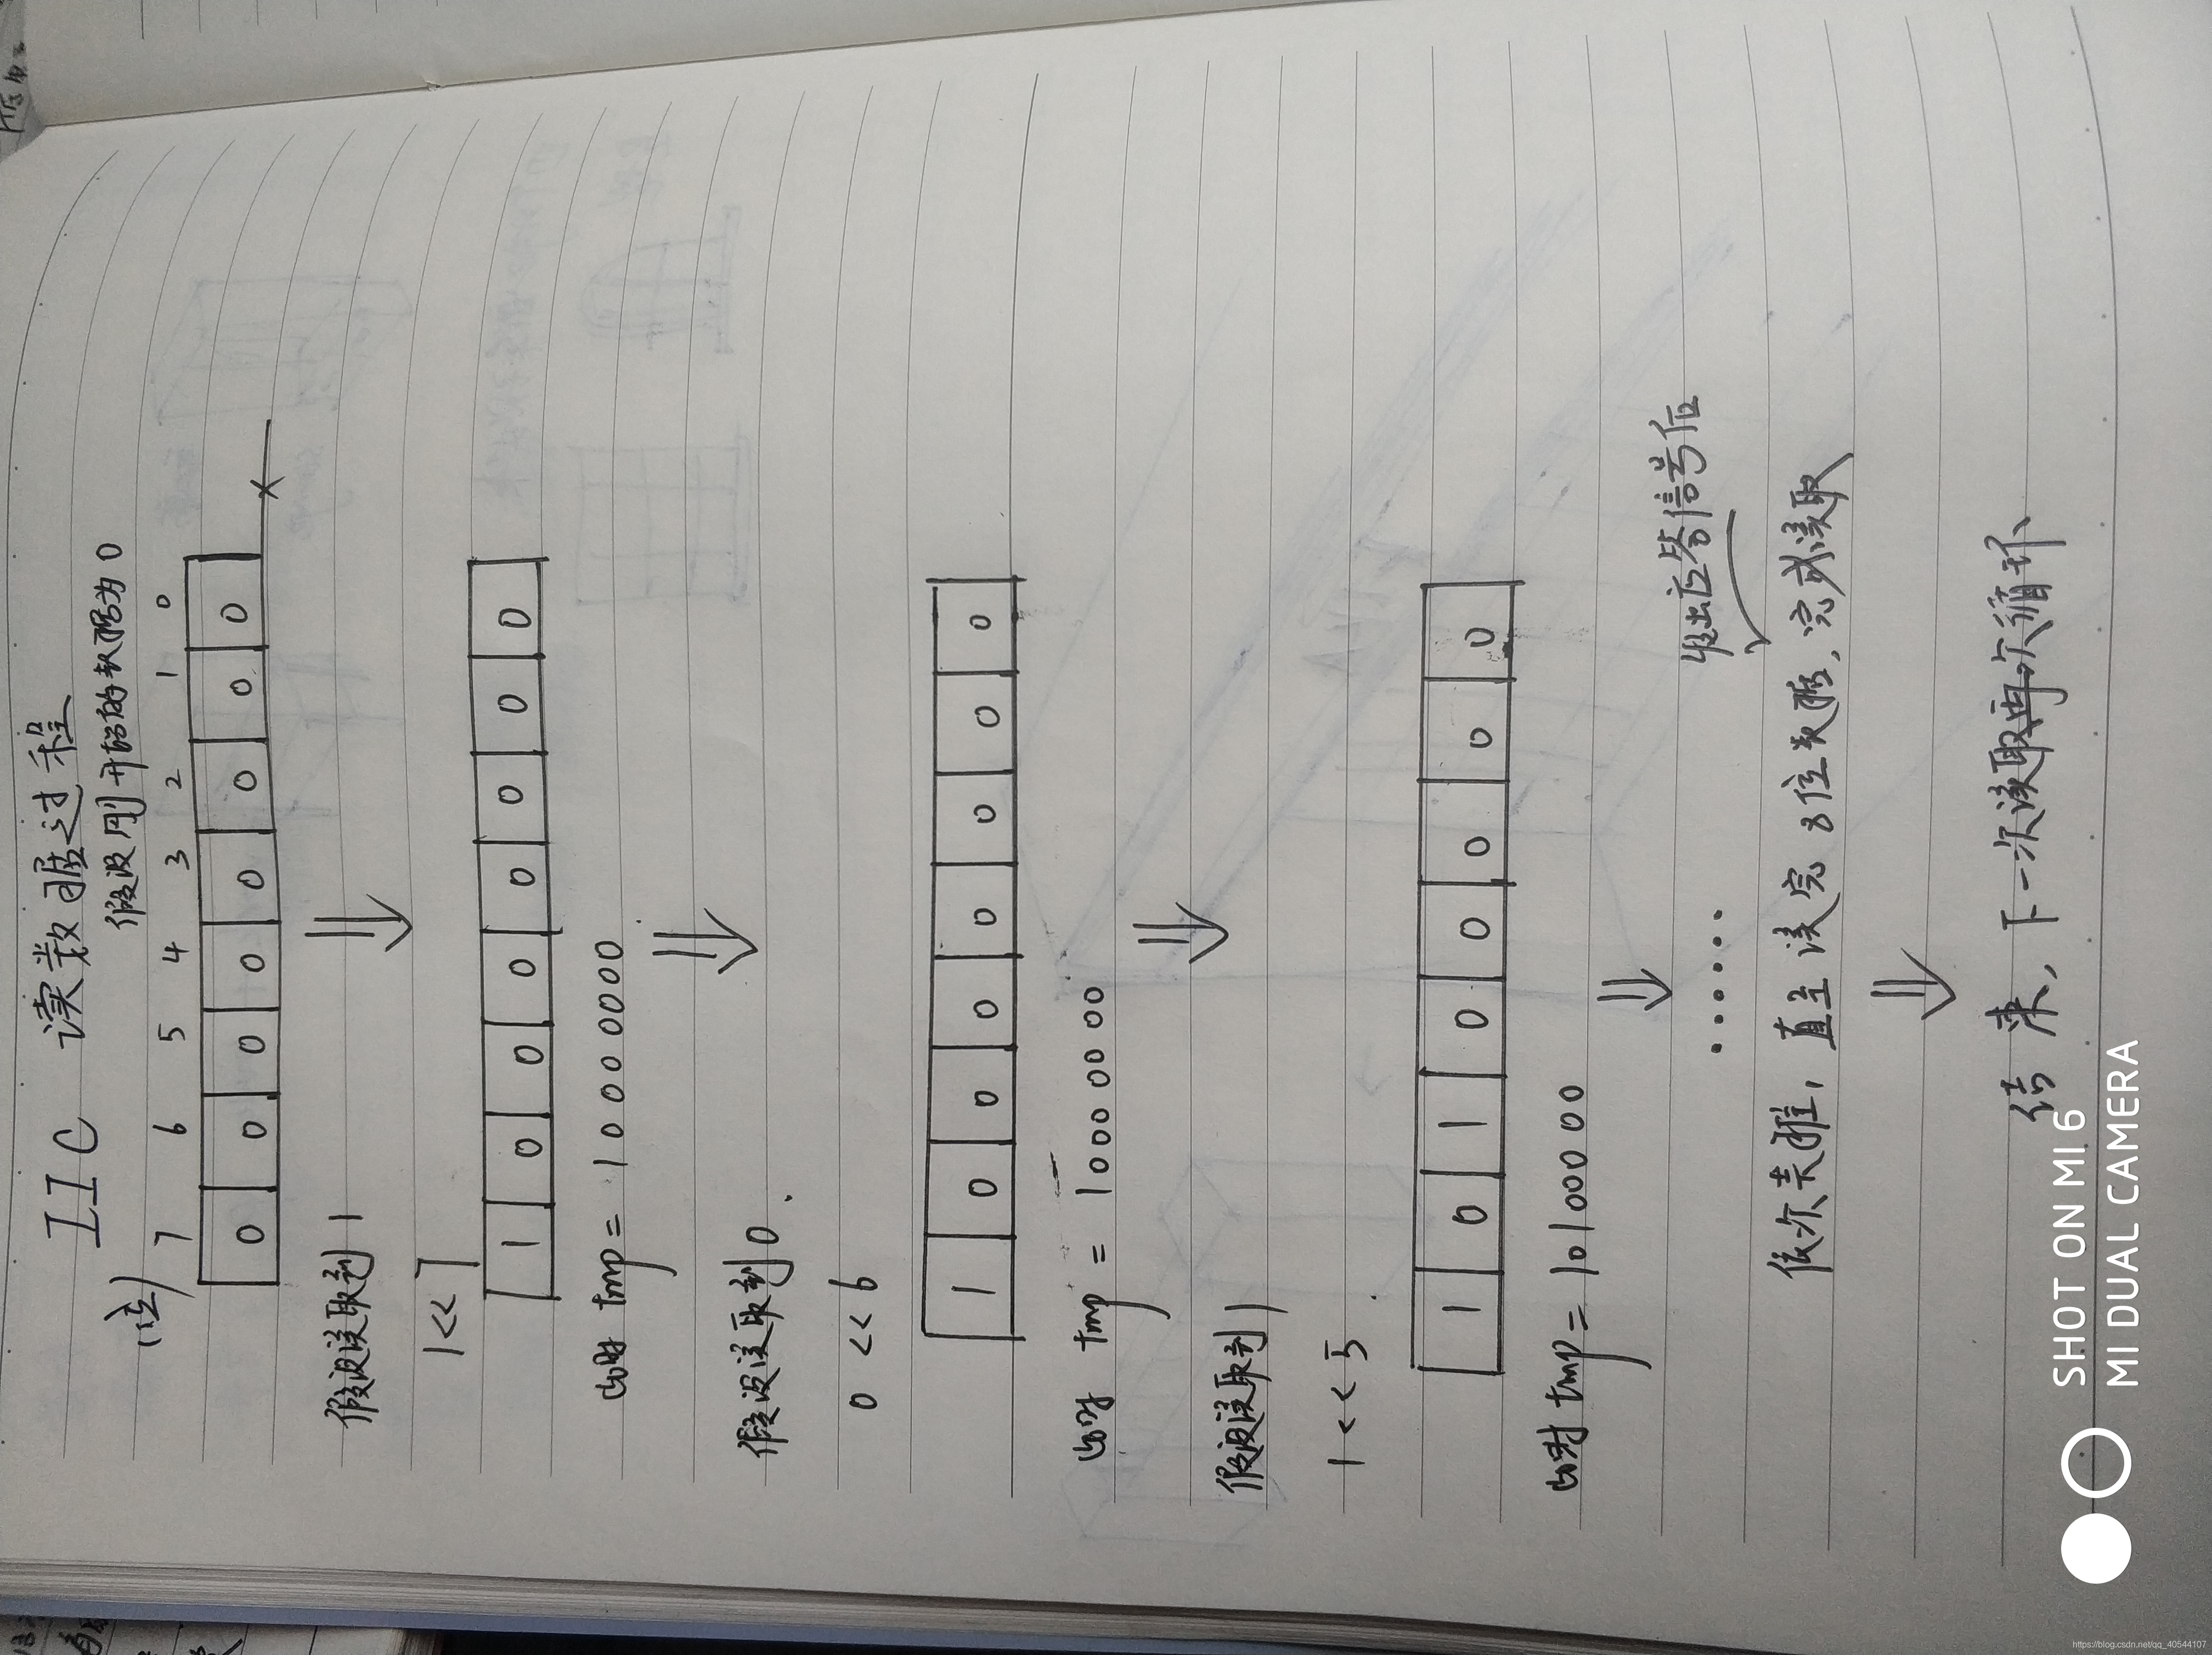 IIC 读数据过程
假设刚开始的数据为0
(位) 7 6 5 4 3 2 1 0
0 0 0 0 0 0 0 0
假设读取到1
1<<7
1 0 0 0 0 0 0 0
此时 tmp = 10000000
假设读取到0.
0<<6
1 0 0 0 0 0 0 0
此时 tmp = 10000000
假设读取到1
1<<5
1 0 1 0 0 0 0 0
此时 tmp = 10100000
......
发出应答信号后
依次类推, 直至读完8位数据, 完成读取
结束, 下一次读取再次循环
SHOT ON MI 6
MI DUAL CAMERA
https://blog.csdn.net/qq_40544107